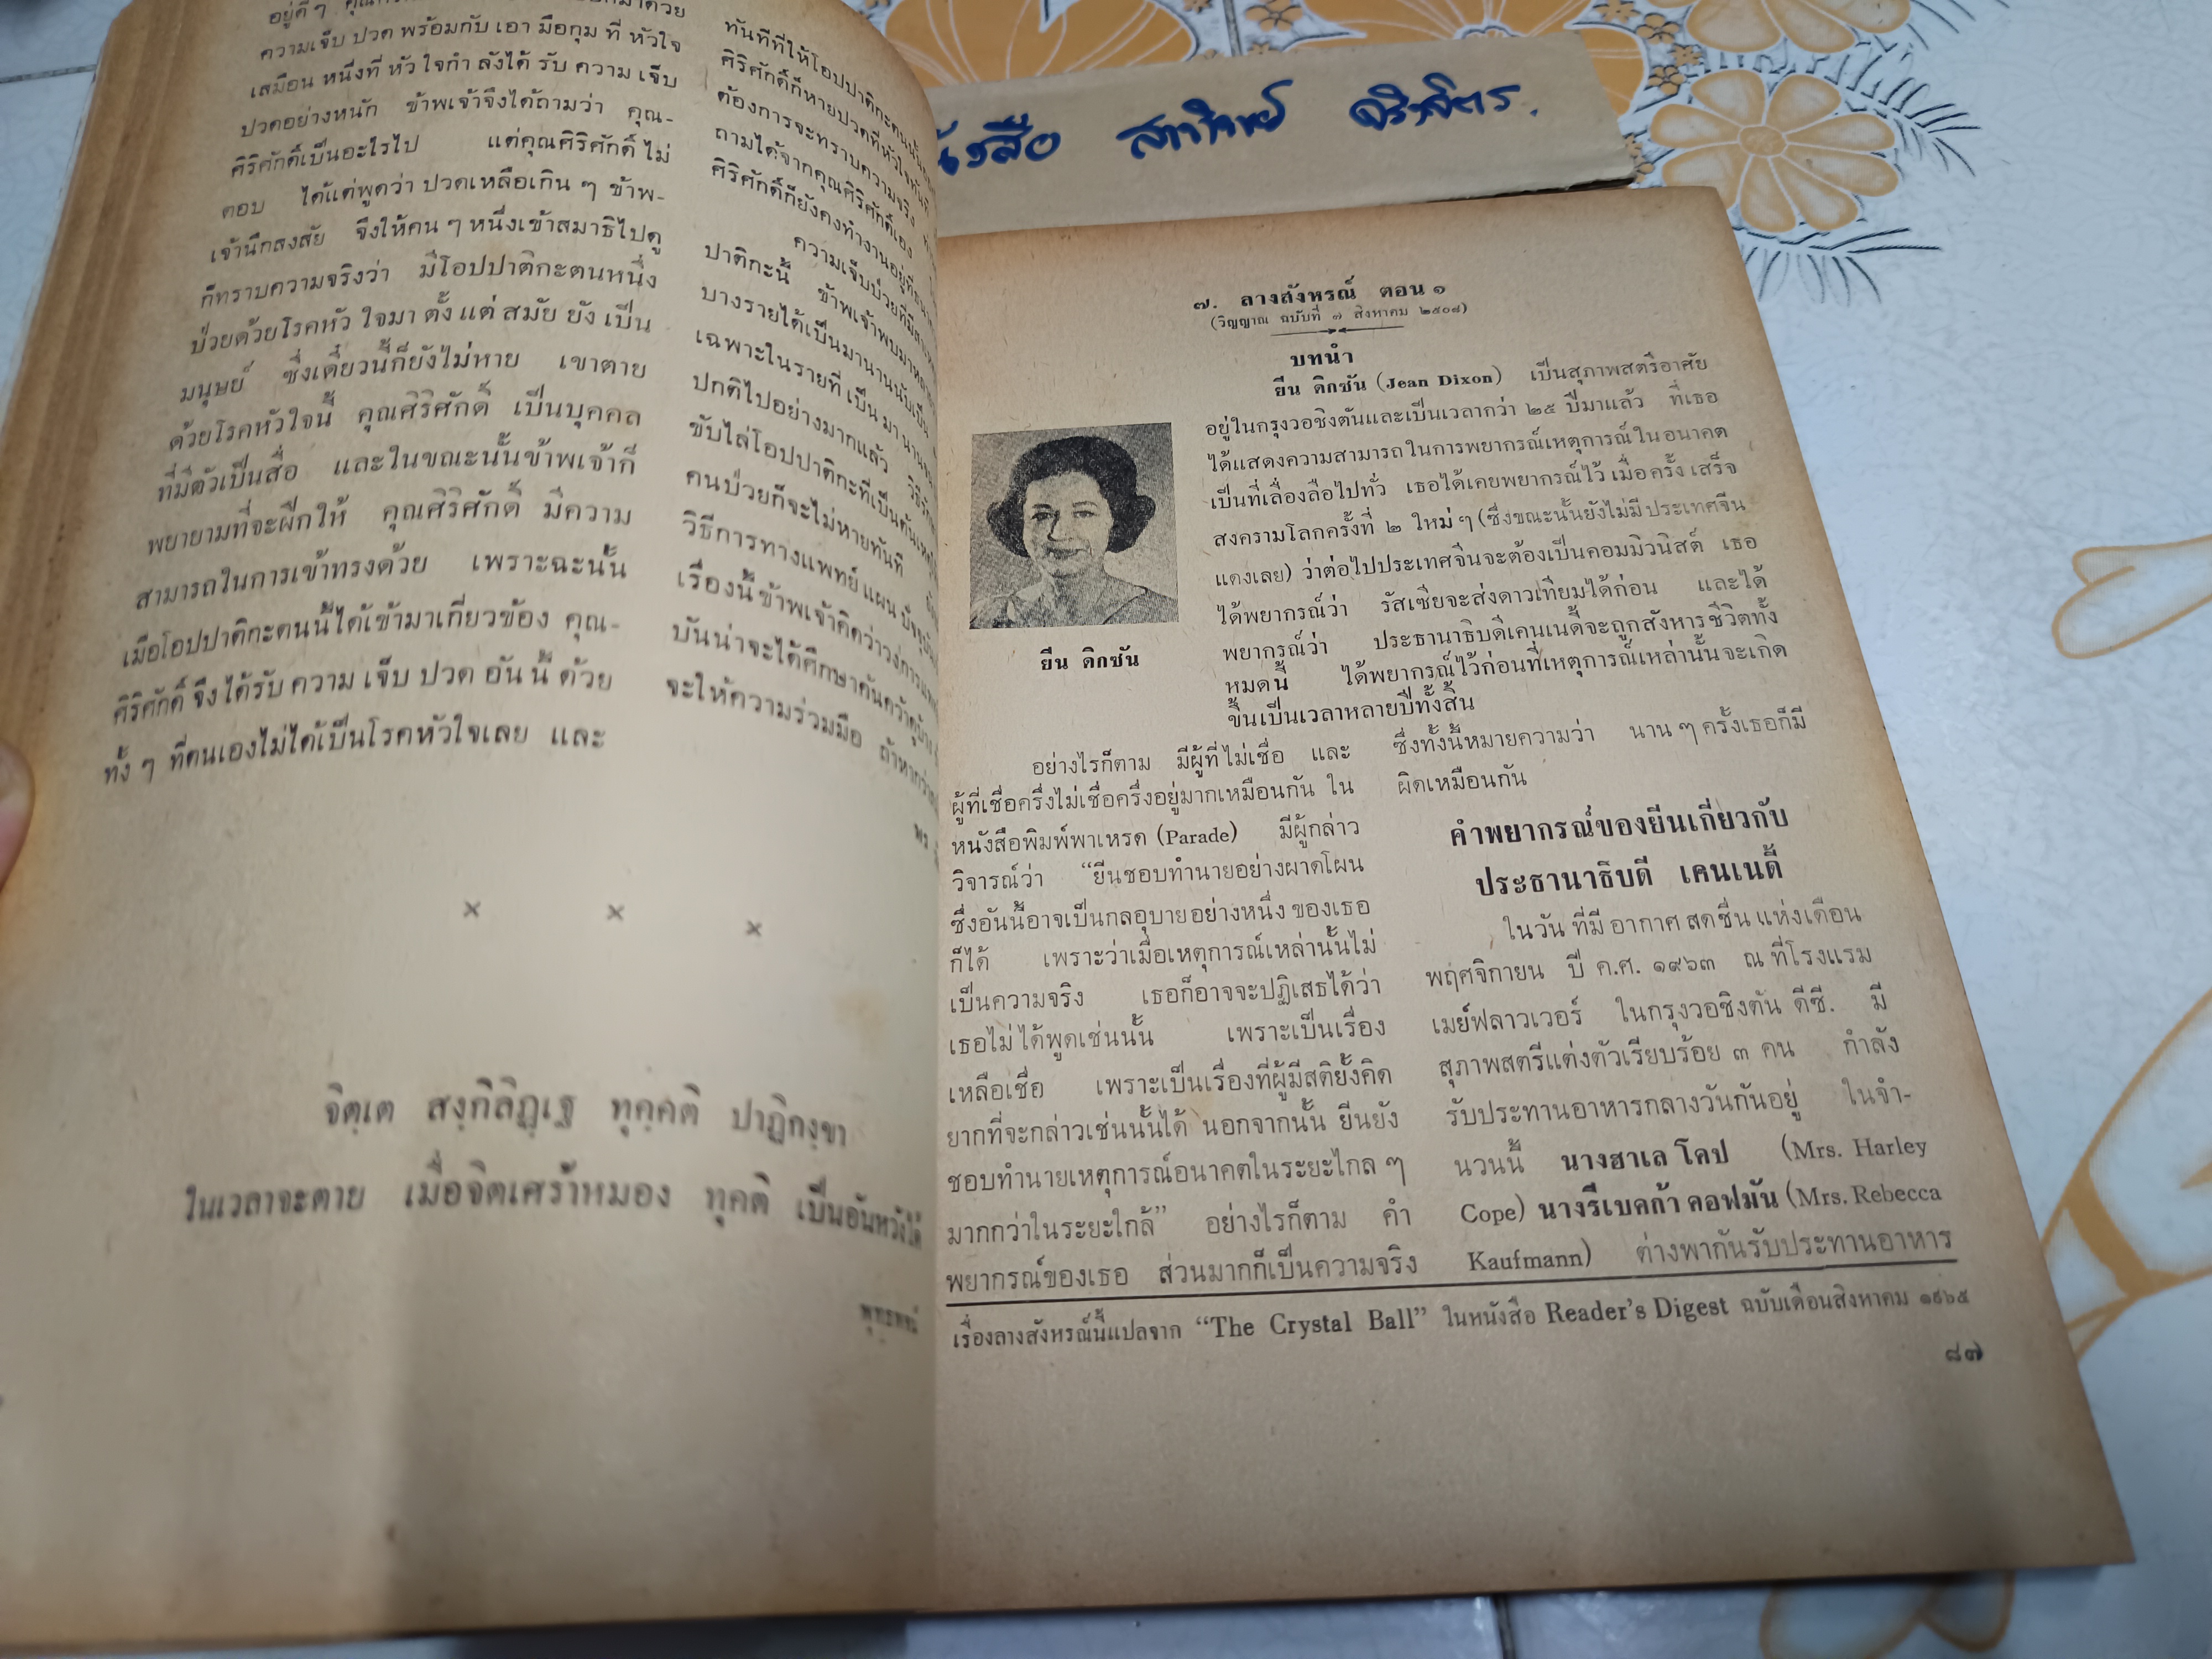 ความเจ็บ ปวด พร้อมกับ เอา มือกุม ที่ หัวใจ
เสมือน หนึ่งที่ หัว ใจกำ ลังได้ รับ ความ เจ็บ
ปวดอย่างหนัก ข้าพเจ้าจึงได้ถามว่า คุณ-
ศิริศักดิ์เป็นอะไรไป แต่คุณศิริศักดิ์ ไม่
ตอบ ได้แต่พูดว่า ปวดเหลือเกิน ๆ ข้าพ-
เจ้านึกสงสัย จึงให้คน ๆ หนึ่งเข้าสมาธิไปดู
ก็ทราบความจริงว่า มีโอปปาติกะตนหนึ่ง
ป่วยด้วยโรคหัว ใจมา ตั้ง แต่ สมัย ยัง เป็น
มนุษย์ ซึ่งเดี๋ยวนี้ก็ยังไม่หาย เขาตาย
ด้วยโรคหัวใจนี้ คุณศิริศักดิ์ เป็นบุคคล
ที่มีตัวเป็นสื่อ และในขณะนั้นข้าพเจ้าก็
พยายามที่จะฝึกให้ คุณศิริศักดิ์ มีความ
สามารถในการเข้าทรงด้วย เพราะฉะนั้น
เมื่อโอปปาติกะตนนี้ได้เข้ามาเกี่ยวข้อง คุณ-
ศิริศักดิ์ จึง ได้รับ ความ เจ็บ ปวด อัน นี้ ด้วย
ทั้ง ๆ ที่ตนเองไม่ได้เป็นโรคหัวใจเลย และ
ทันทีที่ให้โอปปาติกะตนนั้น
ศิริศักดิ์ก็หายปวดที่หัวใจทันที
ต้องการจะทราบความจริง
ถามได้จากคุณศิริศักดิ์เอง
ศิริศักดิ์ก็ยังคงทำงานอยู่ที่
ความเจ็บป่วยที่มี
ปาติกะนี้ ข้าพเจ้าพบมา
บางรายได้เป็นมานานนับเป็น
เฉพาะในรายที่ เป็น มา นาน
ปกติไปอย่างมากแล้ว
ขับไล่โอปปาติกะที่เป็นต้นเหตุ
คนป่วยก็จะไม่หายทันที
วิธีการทางแพทย์ แผน ปัจจุบัน
เรื่องนี้ ข้าพเจ้าคิดว่าวงการ
บันน่าจะได้ศึกษาค้นคว้าดูบ้าง
จะให้ความร่วมมือ ถ้าหากว่า
× × ×
จิตฺเต สงฺกิลิฏฺเฐ ทุคฺคติ ปาฏิกงฺขา
ในเวลาจะตาย เมื่อจิตเศร้าหมอง ทุคติ เป็นอันหวังได้
พุทธพจน์
๗. ลางสังหรณ์ ตอน ๑
(วิญญาณ ฉบับที่ ๗ สิงหาคม ๒๕๐๘)
บทนำ
ยีน ดิกซัน (Jean Dixon) เป็นสุภาพสตรีอาศัย
อยู่ในกรุงวอชิงตันและเป็นเวลากว่า ๒๕ ปีมาแล้ว ที่เธอ
ได้แสดงความสามารถในการพยากรณ์เหตุการณ์ในอนาคต
เป็นที่เลื่องลือไปทั่ว เธอได้เคยพยากรณ์ไว้ เมื่อ ครั้ง เสร็จ
สงครามโลกครั้งที่ ๒ ใหม่ ๆ (ซึ่งขณะนั้นยังไม่มี ประเทศจีน
แดงเลย) ว่าต่อไปประเทศจีนจะต้องเป็นคอมมิวนิสต์ เธอ
ได้พยากรณ์ว่า รัสเซียจะส่งดาวเทียมได้ก่อน และได้
พยากรณ์ว่า ประธานาธิบดีเคนเนดี้จะถูกสังหารชีวิตทั้ง
หมดนี้ ได้พยากรณ์ไว้ก่อนที่เหตุการณ์เหล่านั้นจะเกิด
ขึ้นเป็นเวลาหลายปีทั้งสิ้น
ยีน ดิกซัน
อย่างไรก็ตาม มีผู้ที่ไม่เชื่อ และ
ผู้ที่เชื่อครึ่งไม่เชื่อครึ่งอยู่มากเหมือนกัน ใน
หนังสือพิมพ์พาเหรด (Parade) มีผู้กล่าว
วิจารณ์ว่า “ยีนชอบทำนายอย่างผาดโผน
ซึ่งอันนี้อาจเป็นกลอุบายอย่างหนึ่ง ของเธอ
ก็ได้ เพราะว่าเมื่อเหตุการณ์เหล่านั้นไม่
เป็นความจริง เธอก็อาจจะปฏิเสธได้ว่า
เธอไม่ได้พูดเช่นนั้น เพราะเป็นเรื่อง
เหลือเชื่อ เพราะเป็นเรื่องที่ผู้มีสติยั้งคิด
ยากที่จะกล่าวเช่นนั้นได้ นอกจากนั้น ยีนยัง
ชอบทำนายเหตุการณ์อนาคตในระยะไกล ๆ
มากกว่าในระยะใกล้” อย่างไรก็ตาม คำ
พยากรณ์ของเธอ ส่วนมากก็เป็นความจริง
ซึ่งทั้งนี้หมายความว่า นาน ๆ ครั้งเธอก็มี
ผิดเหมือนกัน
คำพยากรณ์ของยีนเกี่ยวกับ
ประธานาธิบดี เคนเนดี้
ในวัน ที่มี อากาศ สดชื่น แห่งเดือน
พฤศจิกายน ปี ค.ศ. ๑๙๖๓ ณ ที่โรงแรม
เมย์ฟลาวเวอร์ ในกรุงวอชิงตัน ดีซี. มี
สุภาพสตรีแต่งตัวเรียบร้อย ๓ คน กำลัง
รับประทานอาหารกลางวันกันอยู่ ในจำ-
นวนนี้ นางฮาเล โคป (Mrs. Harley
Cope) นางรีเบคก้า คอฟมัน (Mrs. Rebecca
Kaufmann) ต่างพากันรับประทานอาหาร
เรื่องลางสังหรณ์นี้แปลจาก “The Crystal Ball” ในหนังสือ Reader's Digest ฉบับเดือนสิงหาคม ๑๙๖๕
๘๗